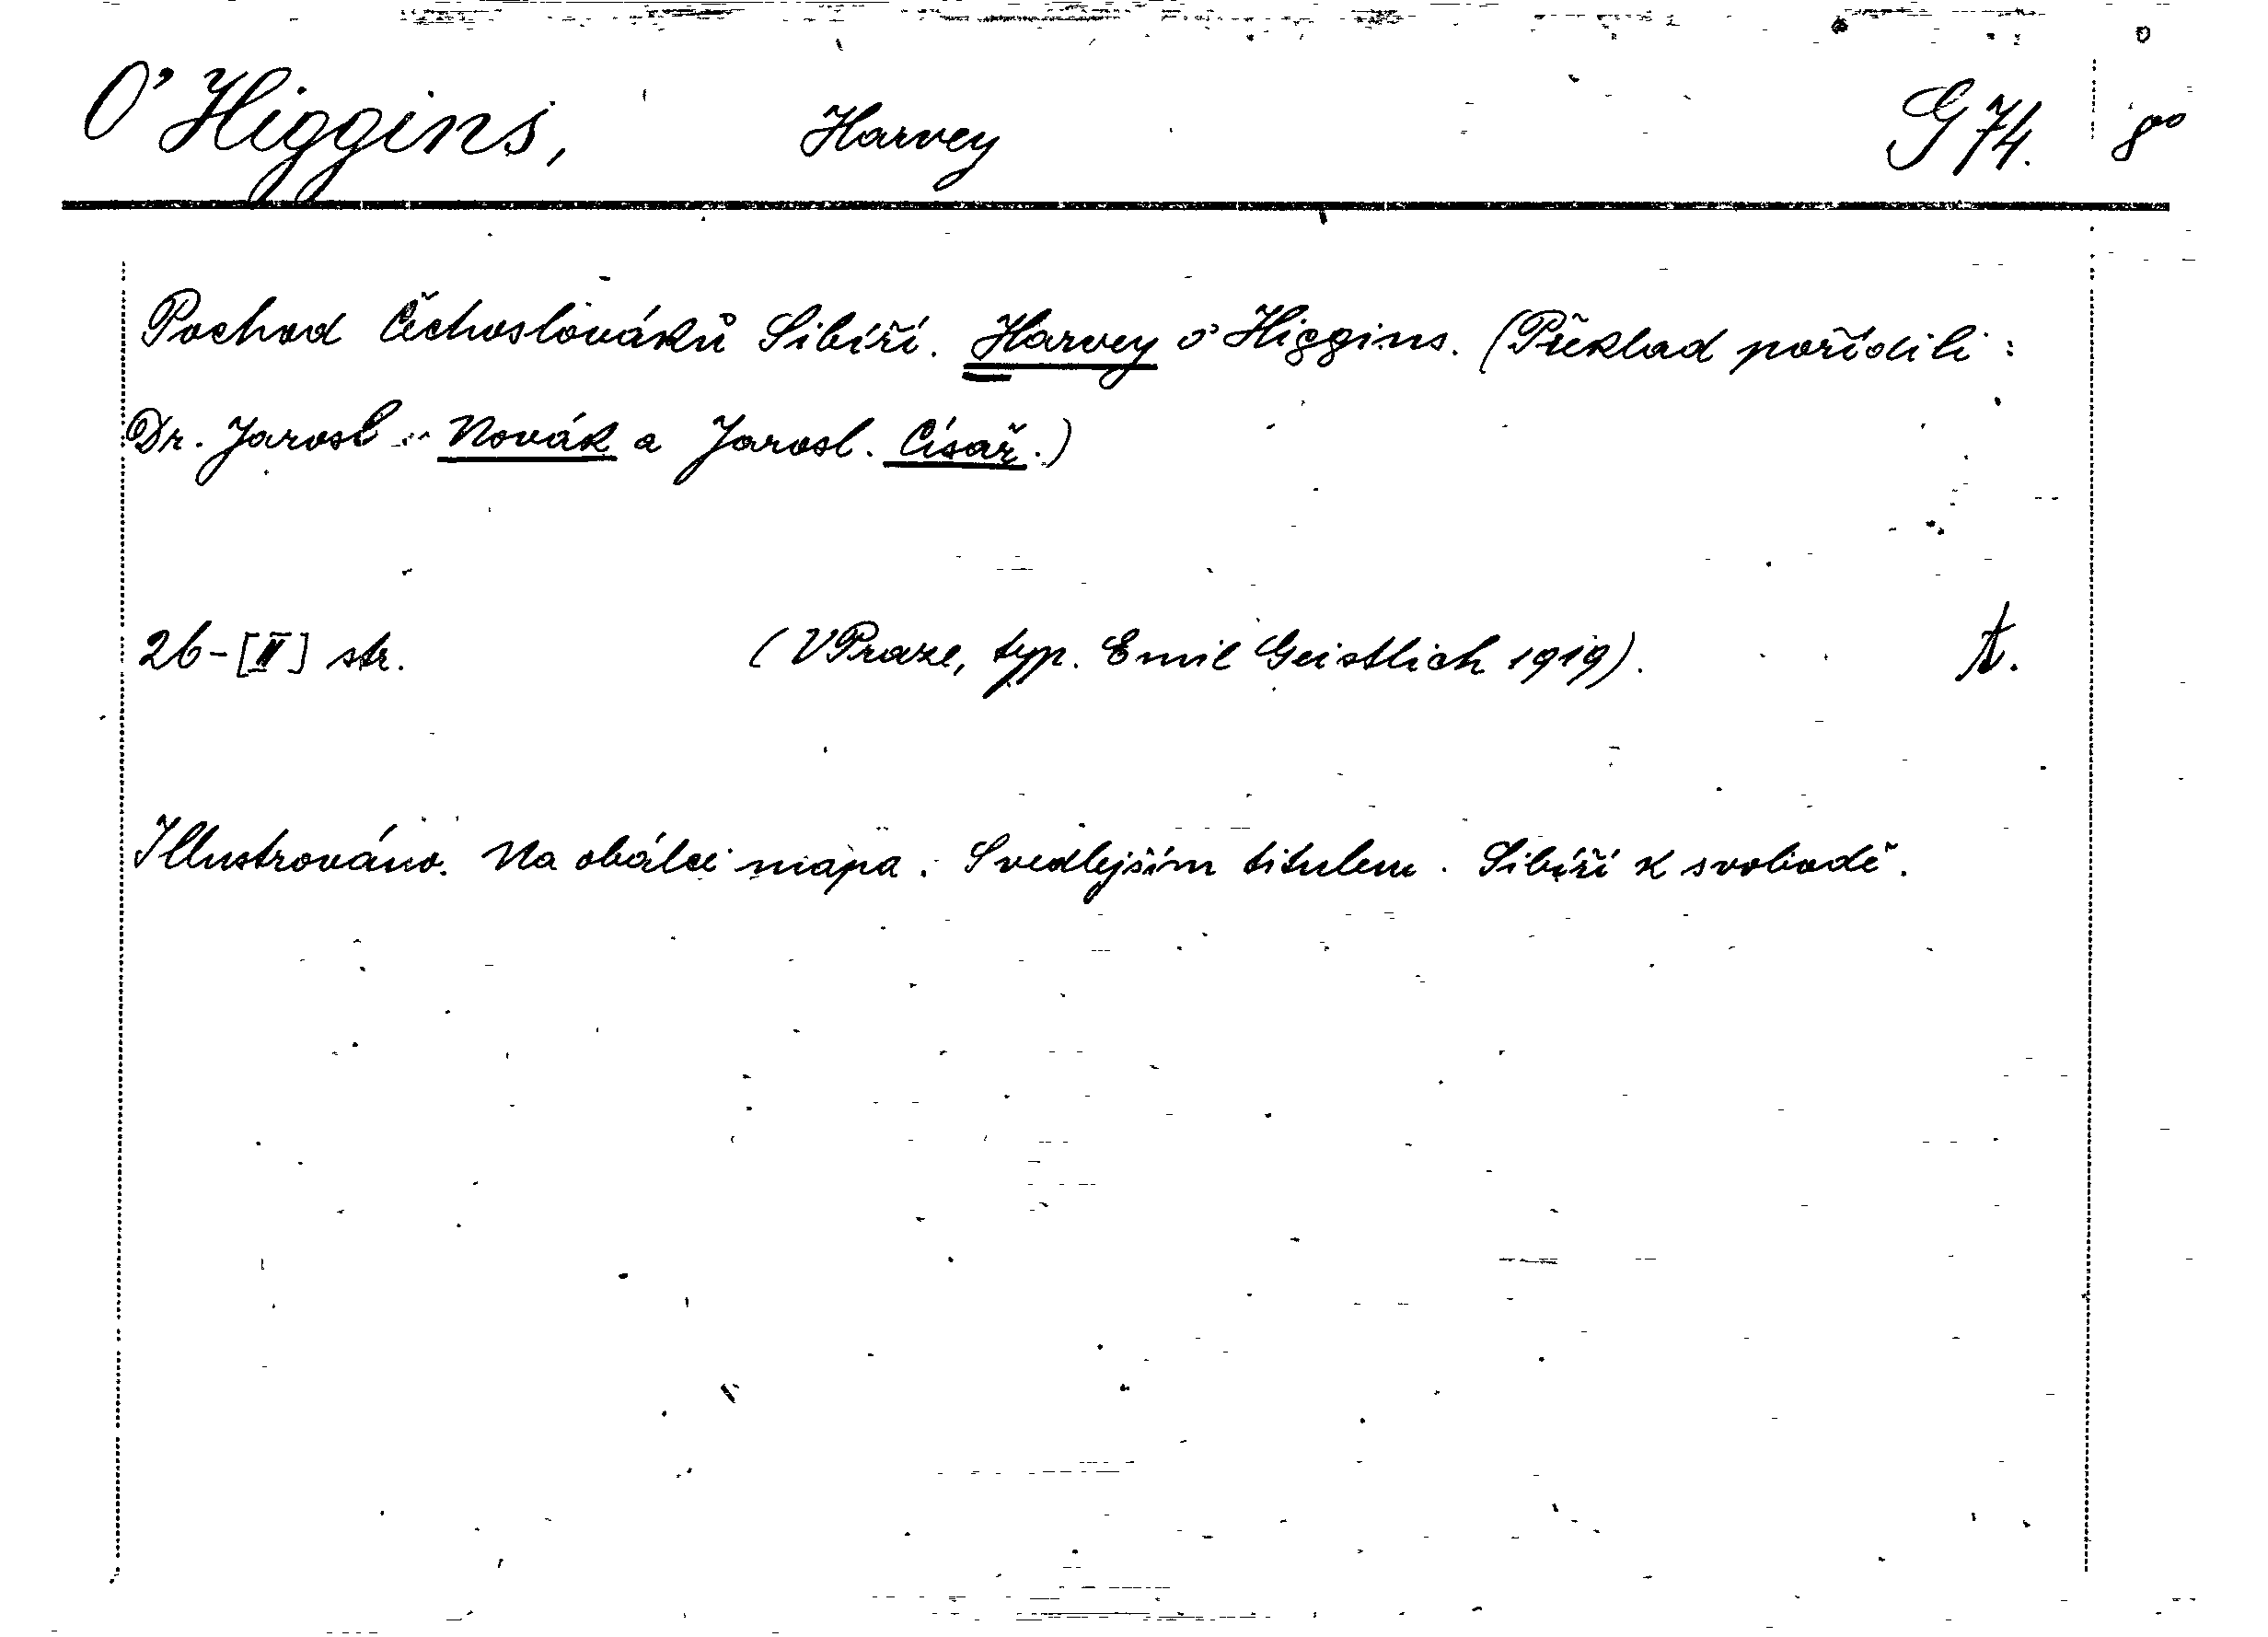 O'Higgins, Harvey G 74. 8°°
Pochod Čechoslováků Sibiří. Harvey o'Higgins. (Překlad pořídili:
Dr. Jarosl. Novák a Jarosl. Císař.)
26-[II] str. (V Praze, typ. Emil Geistlich 1919). t.
Illustrováno. Na obálce mapa. S vedlejším titulem. Sibiří k svobodě.